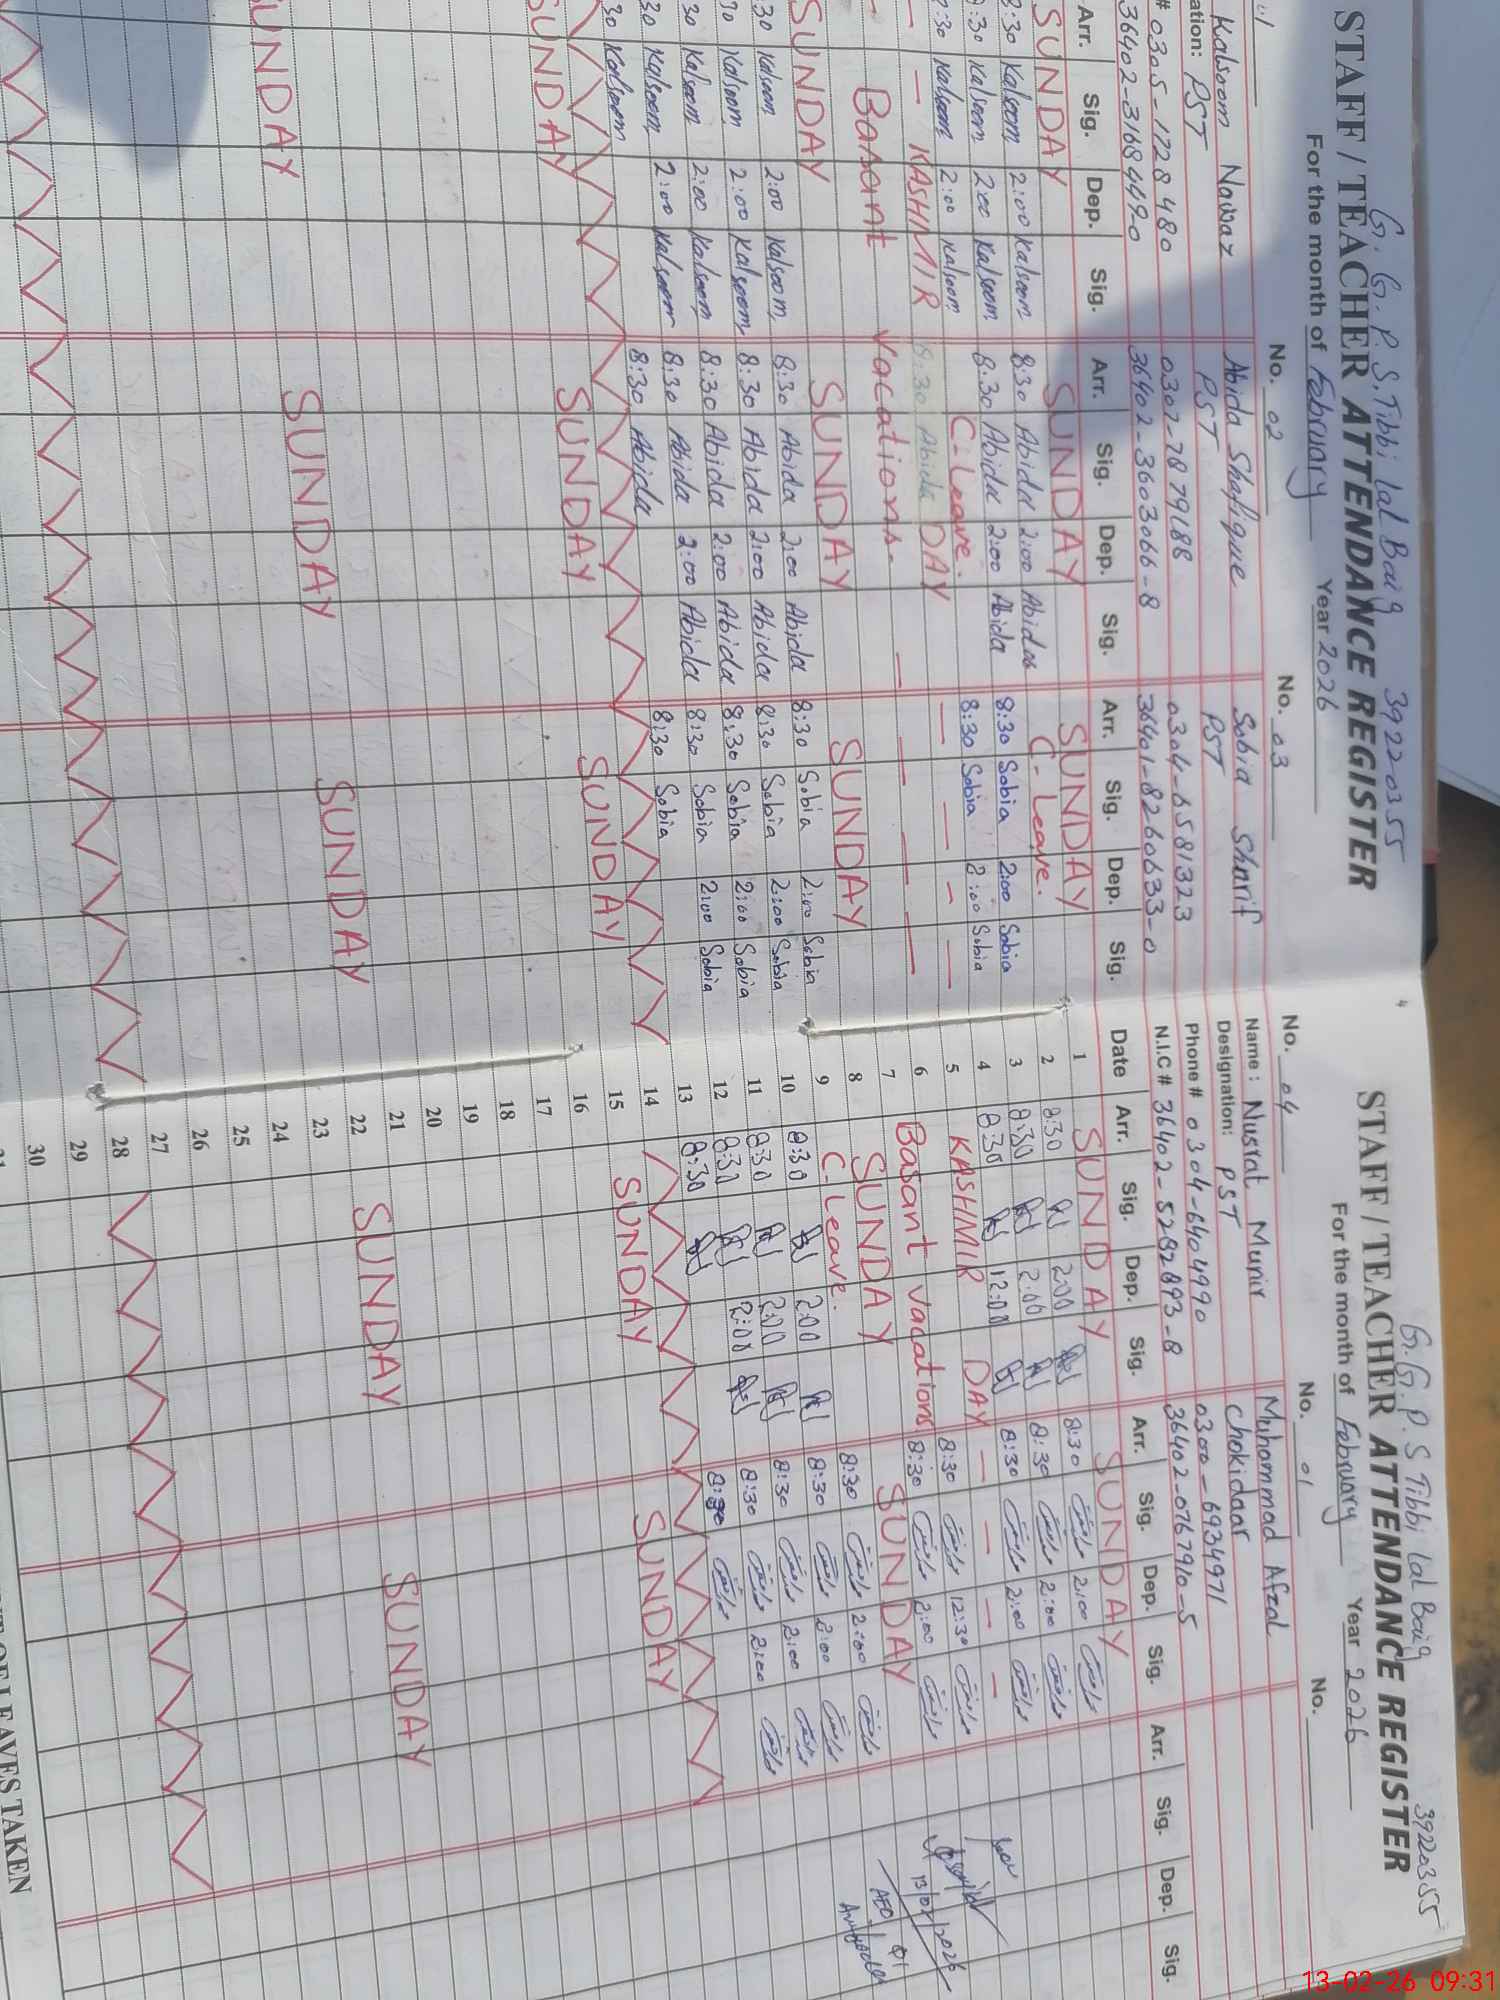 G. G. P. S. Tibbi Lal Baig 39220355
STAFF / TEACHER ATTENDANCE REGISTER
For the month of February Year 2026
No. 02 No. 03
Kalsoom Nawaz Abida Shafique Sobia Sharif
ation: PST PST PST
# 0305-1728480 0307-7879188 0304-6581323
36402-3168449-0 36402-3603066-8 36401-8260633-0
Arr. Sig. Dep. Sig. Arr. Sig. Dep. Sig. Arr. Sig. Dep. Sig.
SUNDAY SUNDAY SUNDAY
8:30 Kalsoom 2:00 Kalsoom 8:30 Abida 2:00 Abida C-Leave.
8:30 Kalsoom 2:00 Kalsoom 8:30 Abida 2:00 Abida 8:30 Sobia 2:00 Sobia
8:30 Kalsoom 2:00 Kalsoom C-Leave. 8:30 Sobia 2:00 Sobia
— — KASHMIR 8:30 Abida DAY — — — —
Basant vacations. — — — —
SUNDAY SUNDAY SUNDAY
:30 Kalsoom 2:00 Kalsoom 8:30 Abida 2:00 Abida 8:30 Sobia 2:00 Sobia
:30 Kalsoom 2:00 Kalsoom 8:30 Abida 2:00 Abida 8:30 Sobia 2:00 Sobia
30 Kalsoom 2:00 Kalsoom 8:30 Abida 2:00 Abida 8:30 Sobia 2:00 Sobia
30 Kalsoom 2:00 Kalsoom 8:30 Abida 2:00 Abida 8:30 Sobia 2:00 Sobia
30 Kalsoom 8:30 Abida 8:30 Sobia
SUNDAY SUNDAY SUNDAY
SUNDAY SUNDAY SUNDAY
4
G. G. P. S Tibbi Lal Baig 39220355
STAFF / TEACHER ATTENDANCE REGISTER
For the month of February Year 2026
No. 04 No. 01 No.
Name : Nusrat Munir Muhammad Afzal
Designation: PST Chokidaar
Phone # 0304-6404990 0300-6934971
N.I.C # 36402-5282893-8 36402-0767910-5
Date Arr. Sig. Dep. Sig. Arr. Sig. Dep. Sig. Arr. Sig. Dep. Sig.
1 SUNDAY SUNDAY
2 8:30 2:00 8:30 2:00
3 8:30 2:00 8:30 2:00
4 8:30 12:00 8:30 2:00
5 KASHMIR DAY — — —
6 Basant vacations 8:30 12:30
7 8:30 2:00
8 SUNDAY SUNDAY
9 C-Leave. 8:30 2:00
10 8:30 2:00 8:30 2:00
11 8:30 2:00 8:30 2:00
12 8:30 2:00 8:30 2:00
13 8:30 8:30
14
15 SUNDAY SUNDAY
16
17
18
19
20
21
22 SUNDAY SUNDAY
23
24
25
26
27
28
29
30
13/02/2026
AEO
LEAVES TAKEN
13-02-26 09:31